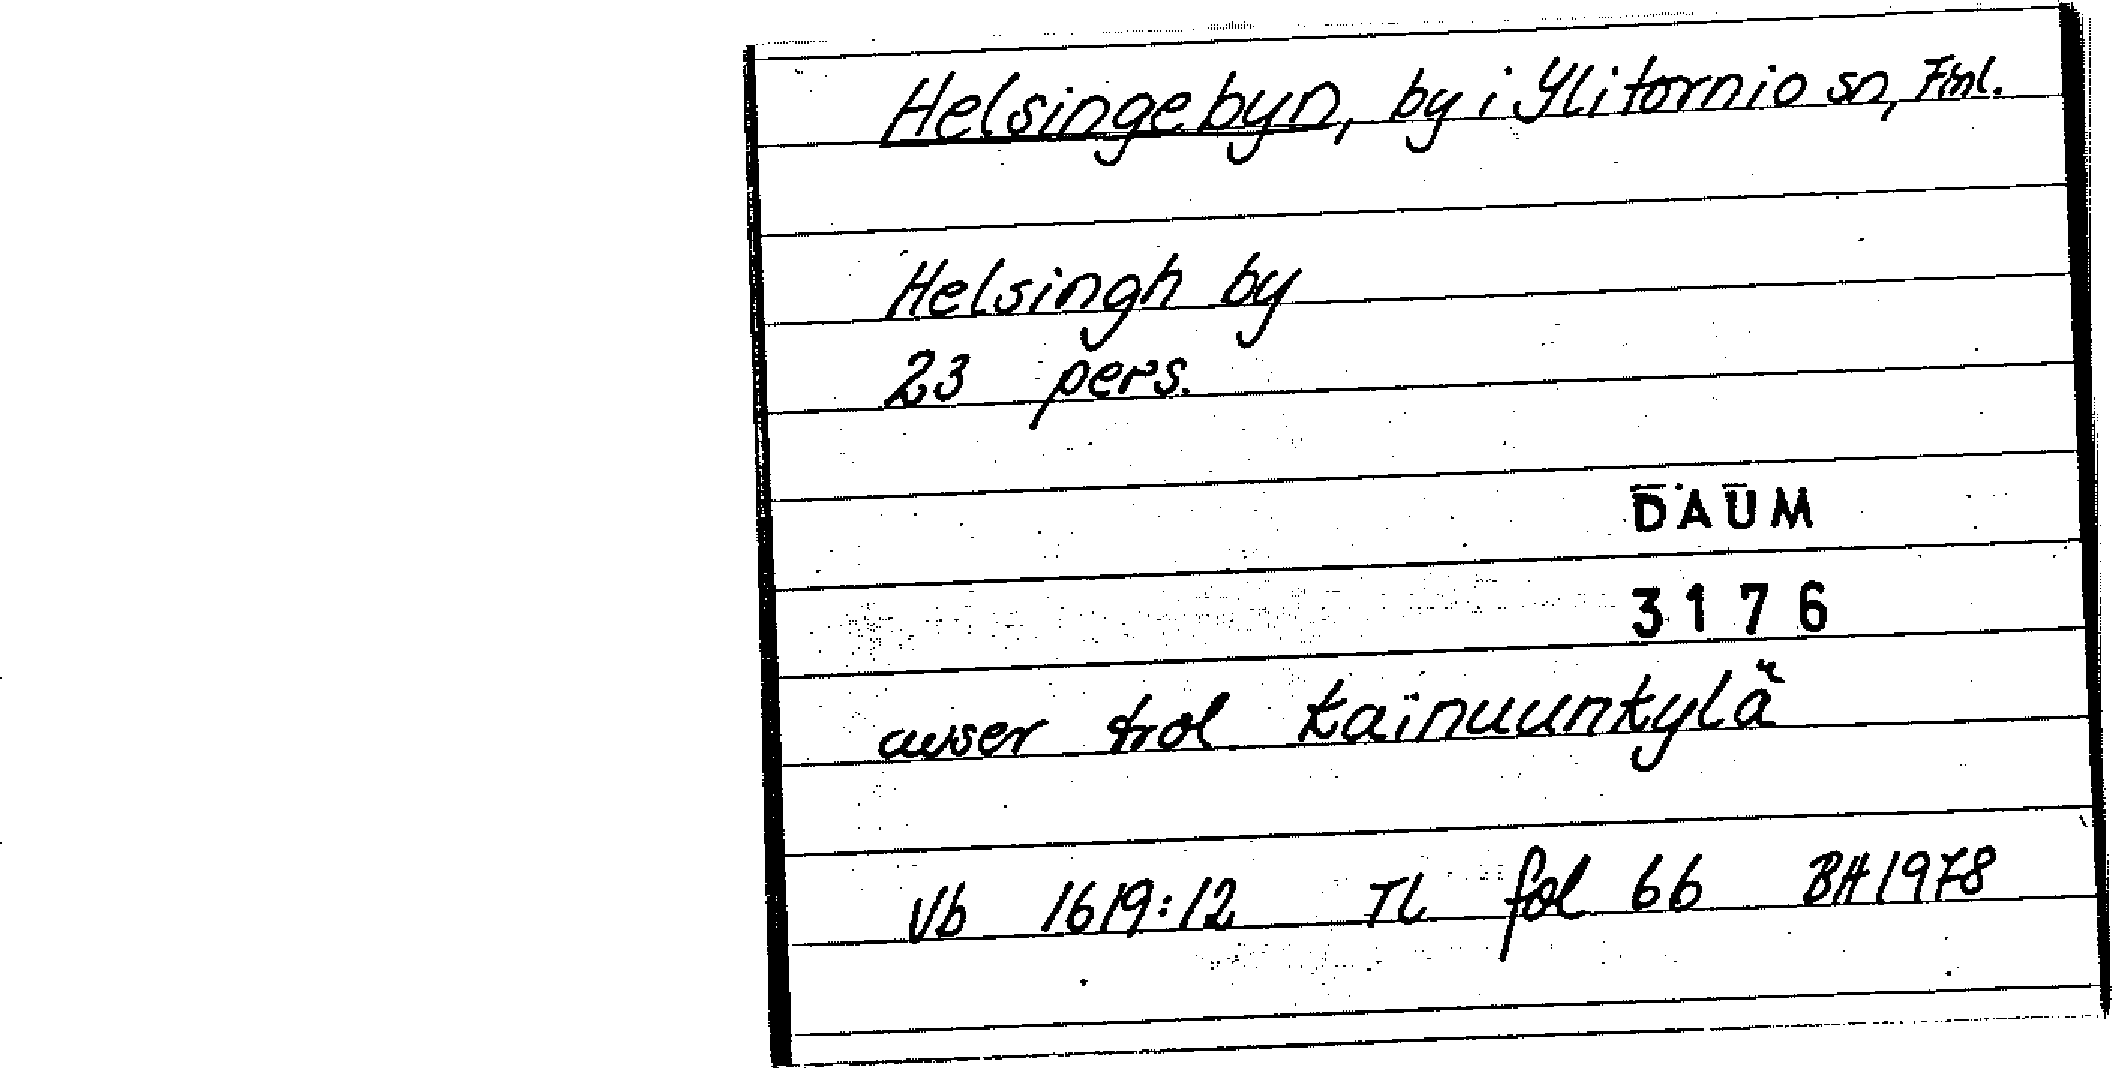 Helsingebyn, by i Ylitornio sn, Finl.
Helsingh by
23 pers.
DAUM
3176
avser trol Kainuunkylä
Vb 1619:12 TL fol 66 BH 1978